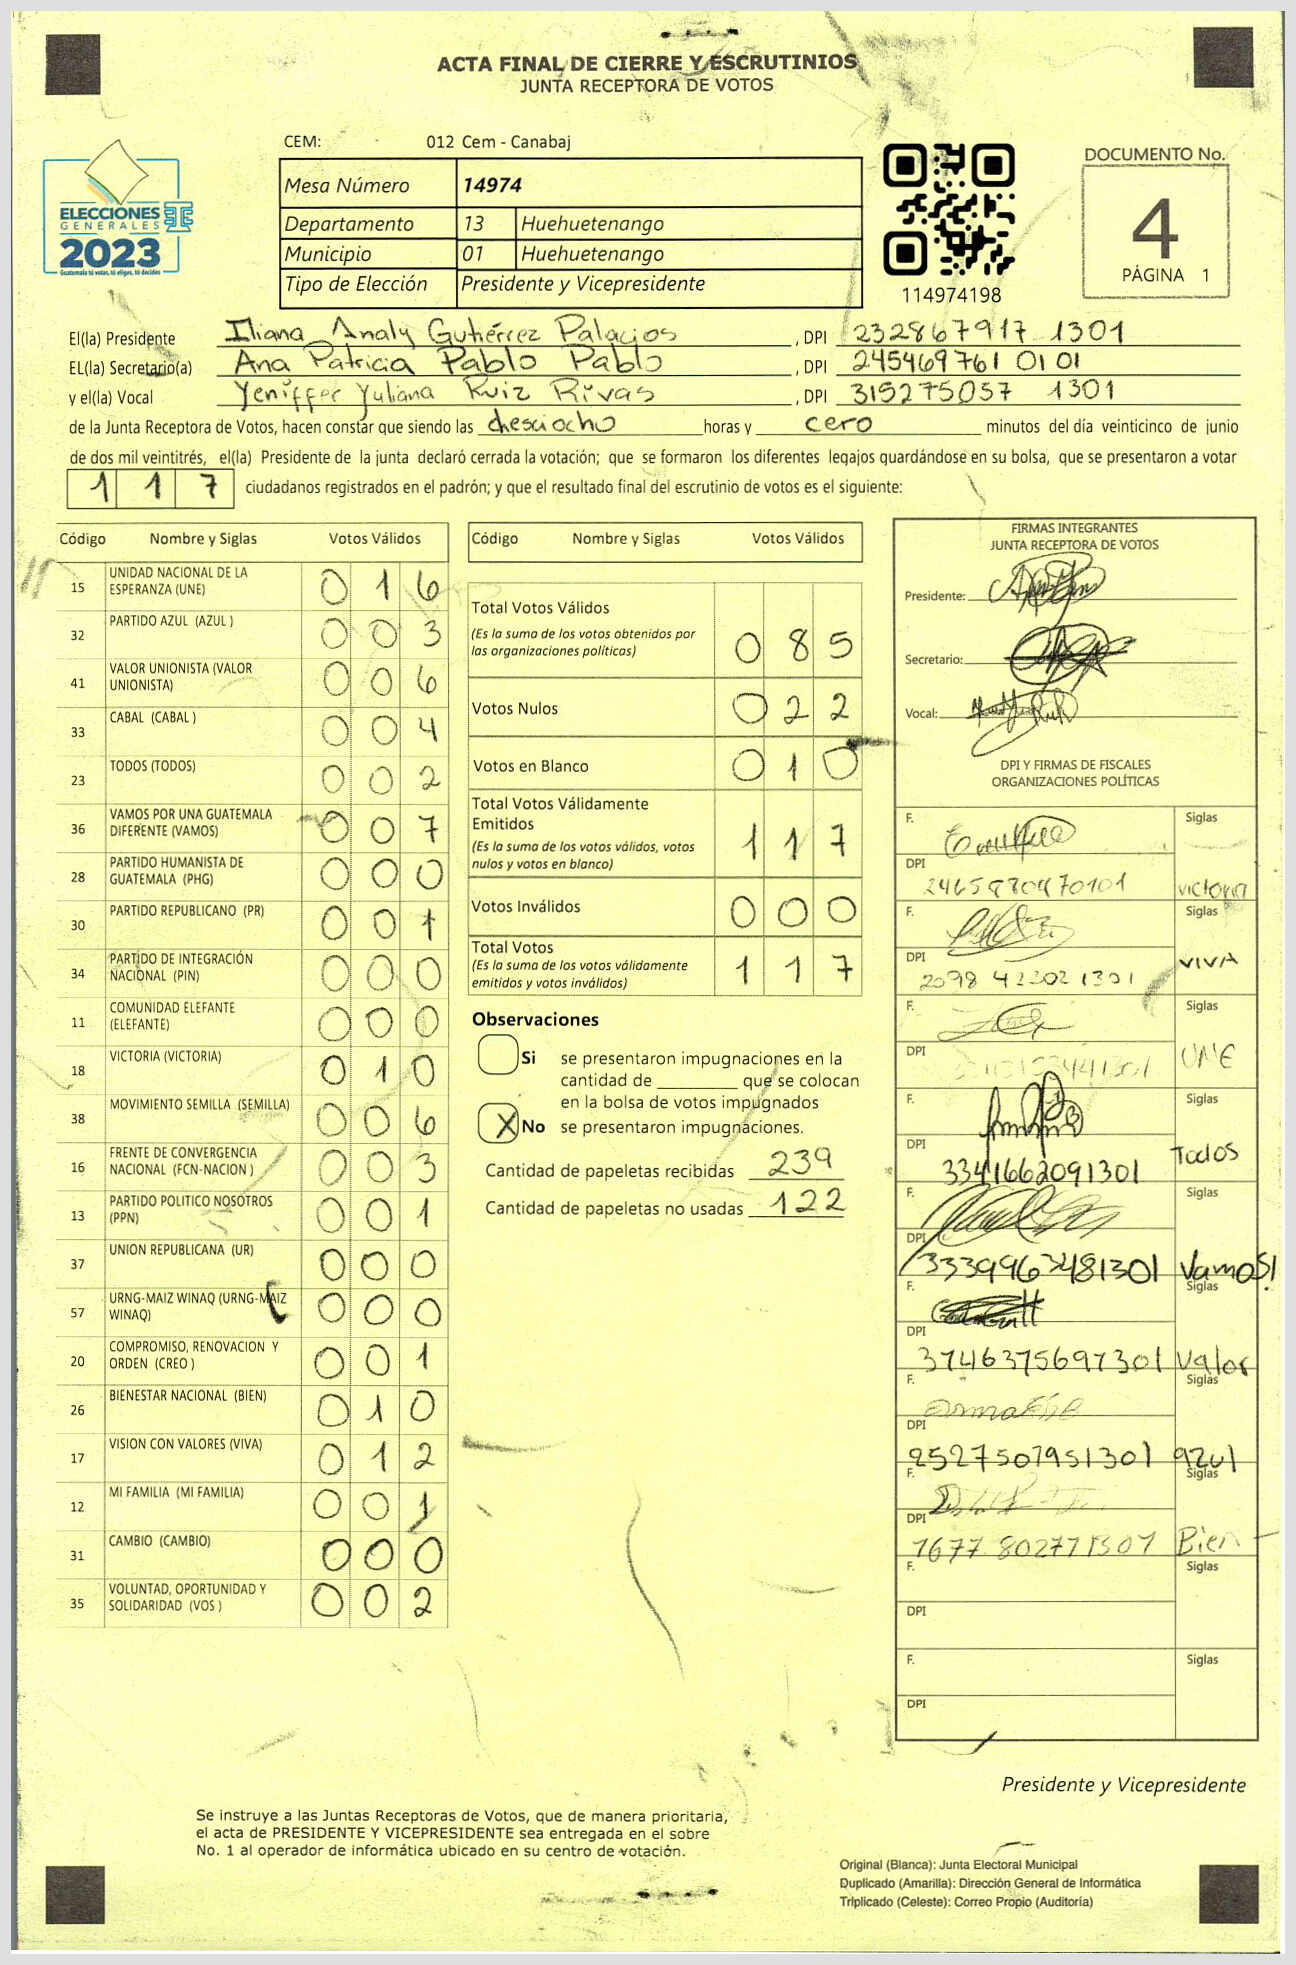 ACTA FINAL DE CIERRE Y ESCRUTINIOS
JUNTA RECEPTORA DE VOTOS
CEM: 012 Cem - Canabaj
ELECCIONES
GENERALES
2023
Guatemala tú votas, tú eliges, tú decides
Mesa Número 14974
Departamento 13 Huehuetenango
Municipio 01 Huehuetenango
Tipo de Elección Presidente y Vicepresidente
114974198
DOCUMENTO No.
4
PÁGINA 1
El(la) Presidente Iliana Analy Gutiérrez Palacios, DPI 232867917 1301
EL(la) Secretario(a) Ana Patricia Pablo Pablo, DPI 245469761 0101
y el(la) Vocal Yeniffer Yuliana Ruiz Rivas, DPI 315275057 1301
de la Junta Receptora de Votos, hacen constar que siendo las diesciocho horas y cero minutos del día veinticinco de junio
de dos mil veintitrés, el(la) Presidente de la junta declaró cerrada la votación; que se formaron los diferentes legajos quardándose en su bolsa, que se presentaron a votar
117 ciudadanos registrados en el padrón; y que el resultado final del escrutinio de votos es el siguiente:
Código Nombre y Siglas Votos Válidos
15 UNIDAD NACIONAL DE LA ESPERANZA (UNE) 016
32 PARTIDO AZUL (AZUL ) 003
41 VALOR UNIONISTA (VALOR UNIONISTA) 006
33 CABAL (CABAL ) 004
23 TODOS (TODOS) 002
36 VAMOS POR UNA GUATEMALA DIFERENTE (VAMOS) 007
28 PARTIDO HUMANISTA DE GUATEMALA (PHG) 000
30 PARTIDO REPUBLICANO (PR) 001
34 PARTIDO DE INTEGRACIÓN NACIONAL (PIN) 000
11 COMUNIDAD ELEFANTE (ELEFANTE) 000
18 VICTORIA (VICTORIA) 010
38 MOVIMIENTO SEMILLA (SEMILLA) 006
16 FRENTE DE CONVERGENCIA NACIONAL (FCN-NACION ) 003
13 PARTIDO POLITICO NOSOTROS (PPN) 001
37 UNION REPUBLICANA (UR) 000
57 URNG-MAIZ WINAQ (URNG-MAIZ WINAQ) 000
20 COMPROMISO, RENOVACION Y ORDEN (CREO ) 001
26 BIENESTAR NACIONAL (BIEN) 010
17 VISION CON VALORES (VIVA) 012
12 MI FAMILIA (MI FAMILIA) 001
31 CAMBIO (CAMBIO) 000
35 VOLUNTAD, OPORTUNIDAD Y SOLIDARIDAD (VOS ) 002
Código Nombre y Siglas Votos Válidos
Total Votos Válidos 085
(Es la suma de los votos obtenidos por
las organizaciones políticas)
Votos Nulos 022
Votos en Blanco 010
Total Votos Válidamente
Emitidos 117
(Es la suma de los votos válidos, votos
nulos y votos en blanco)
Votos Inválidos 000
Total Votos 117
(Es la suma de los votos válidamente
emitidos y votos inválidos)
Observaciones
Si se presentaron impugnaciones en la
cantidad de ________ que se colocan
en la bolsa de votos impugnados
X No se presentaron impugnaciones.
Cantidad de papeletas recibidas 239
Cantidad de papeletas no usadas 122
FIRMAS INTEGRANTES
JUNTA RECEPTORA DE VOTOS
Presidente:
Secretario:
Vocal:
DPI Y FIRMAS DE FISCALES
ORGANIZACIONES POLÍTICAS
F. Siglas
DPI VICTORIA
F. Siglas
DPI VIVA
F. Siglas
DPI UNE
F. Siglas
DPI 3341662091301 Todos
F. Siglas
DPI 3339963481301 Vamos!
F. Siglas
DPI 3746375697301 Valor
F. Siglas
DPI 2527507951301 azul
F. Siglas
DPI 1677 802771301 Bien
F. Siglas
DPI
F. Siglas
DPI
Presidente y Vicepresidente
Se instruye a las Juntas Receptoras de Votos, que de manera prioritaria,
el acta de PRESIDENTE Y VICEPRESIDENTE sea entregada en el sobre
No. 1 al operador de informática ubicado en su centro de votación.
Original (Blanca): Junta Electoral Municipal
Duplicado (Amarilla): Dirección General de Informática
Triplicado (Celeste): Correo Propio (Auditoría)